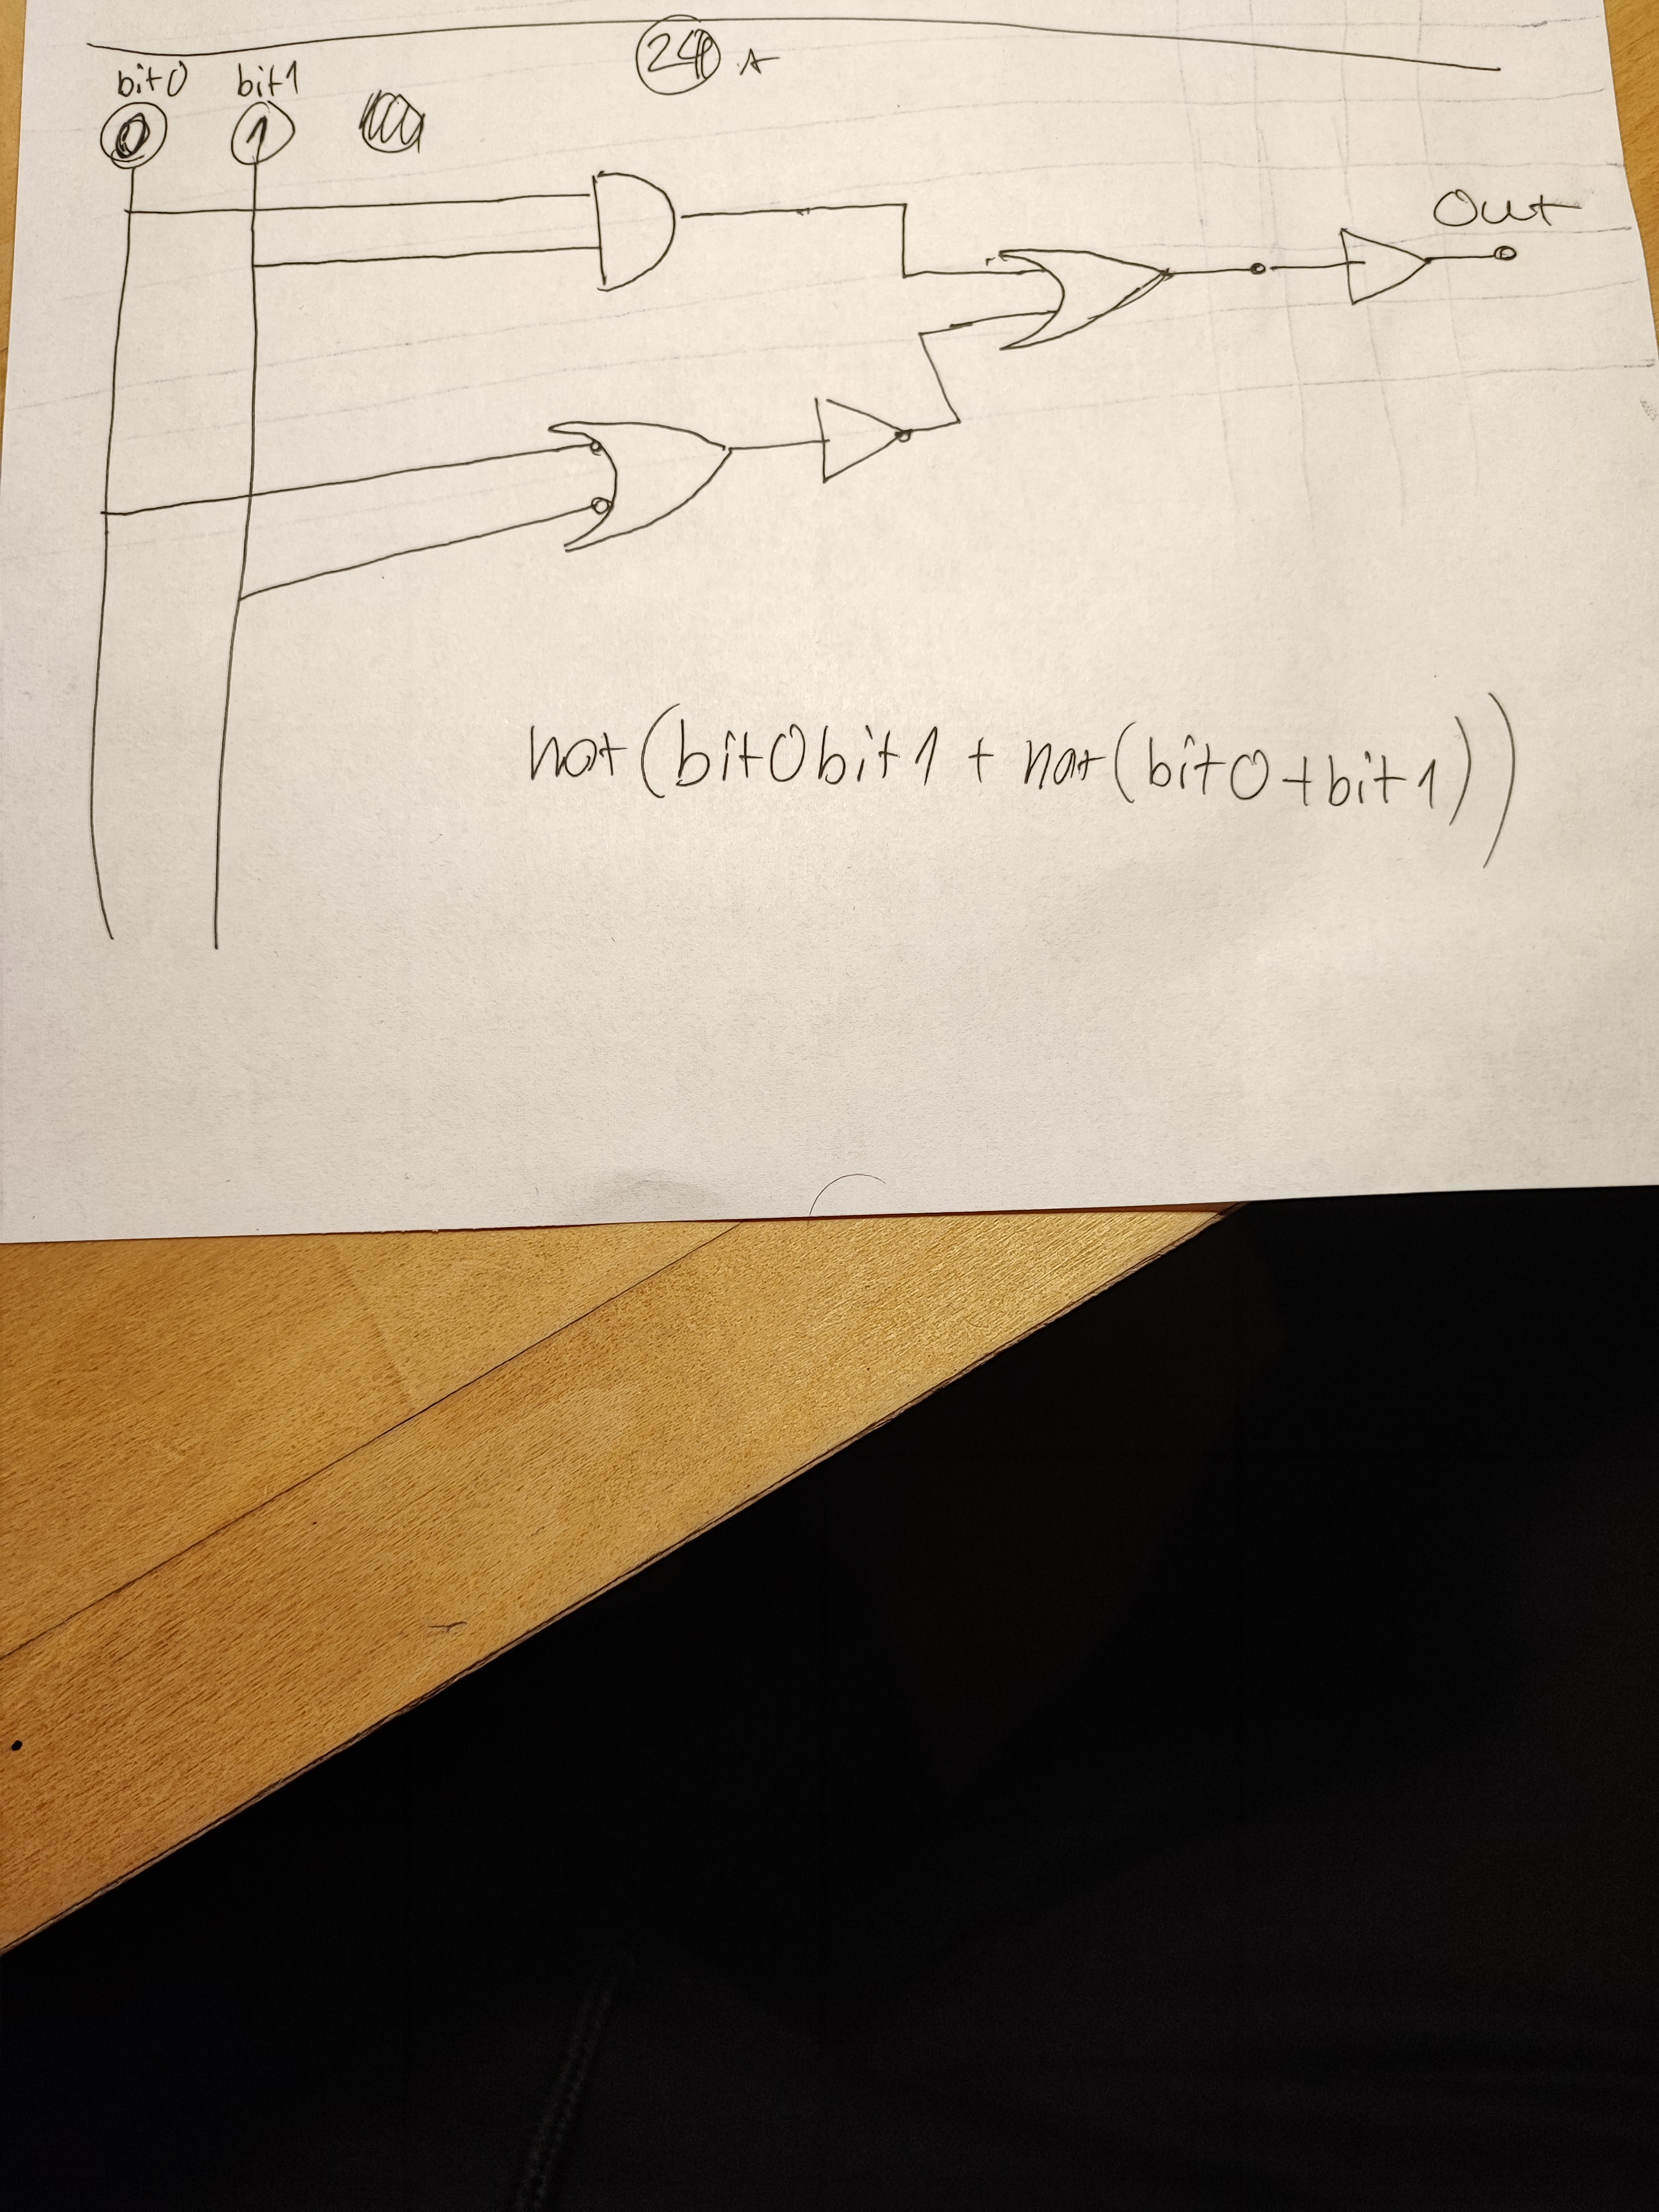 24 A
bit0 bit1
0 1
Out
not(bit0bit1 + not(bit0+bit1))